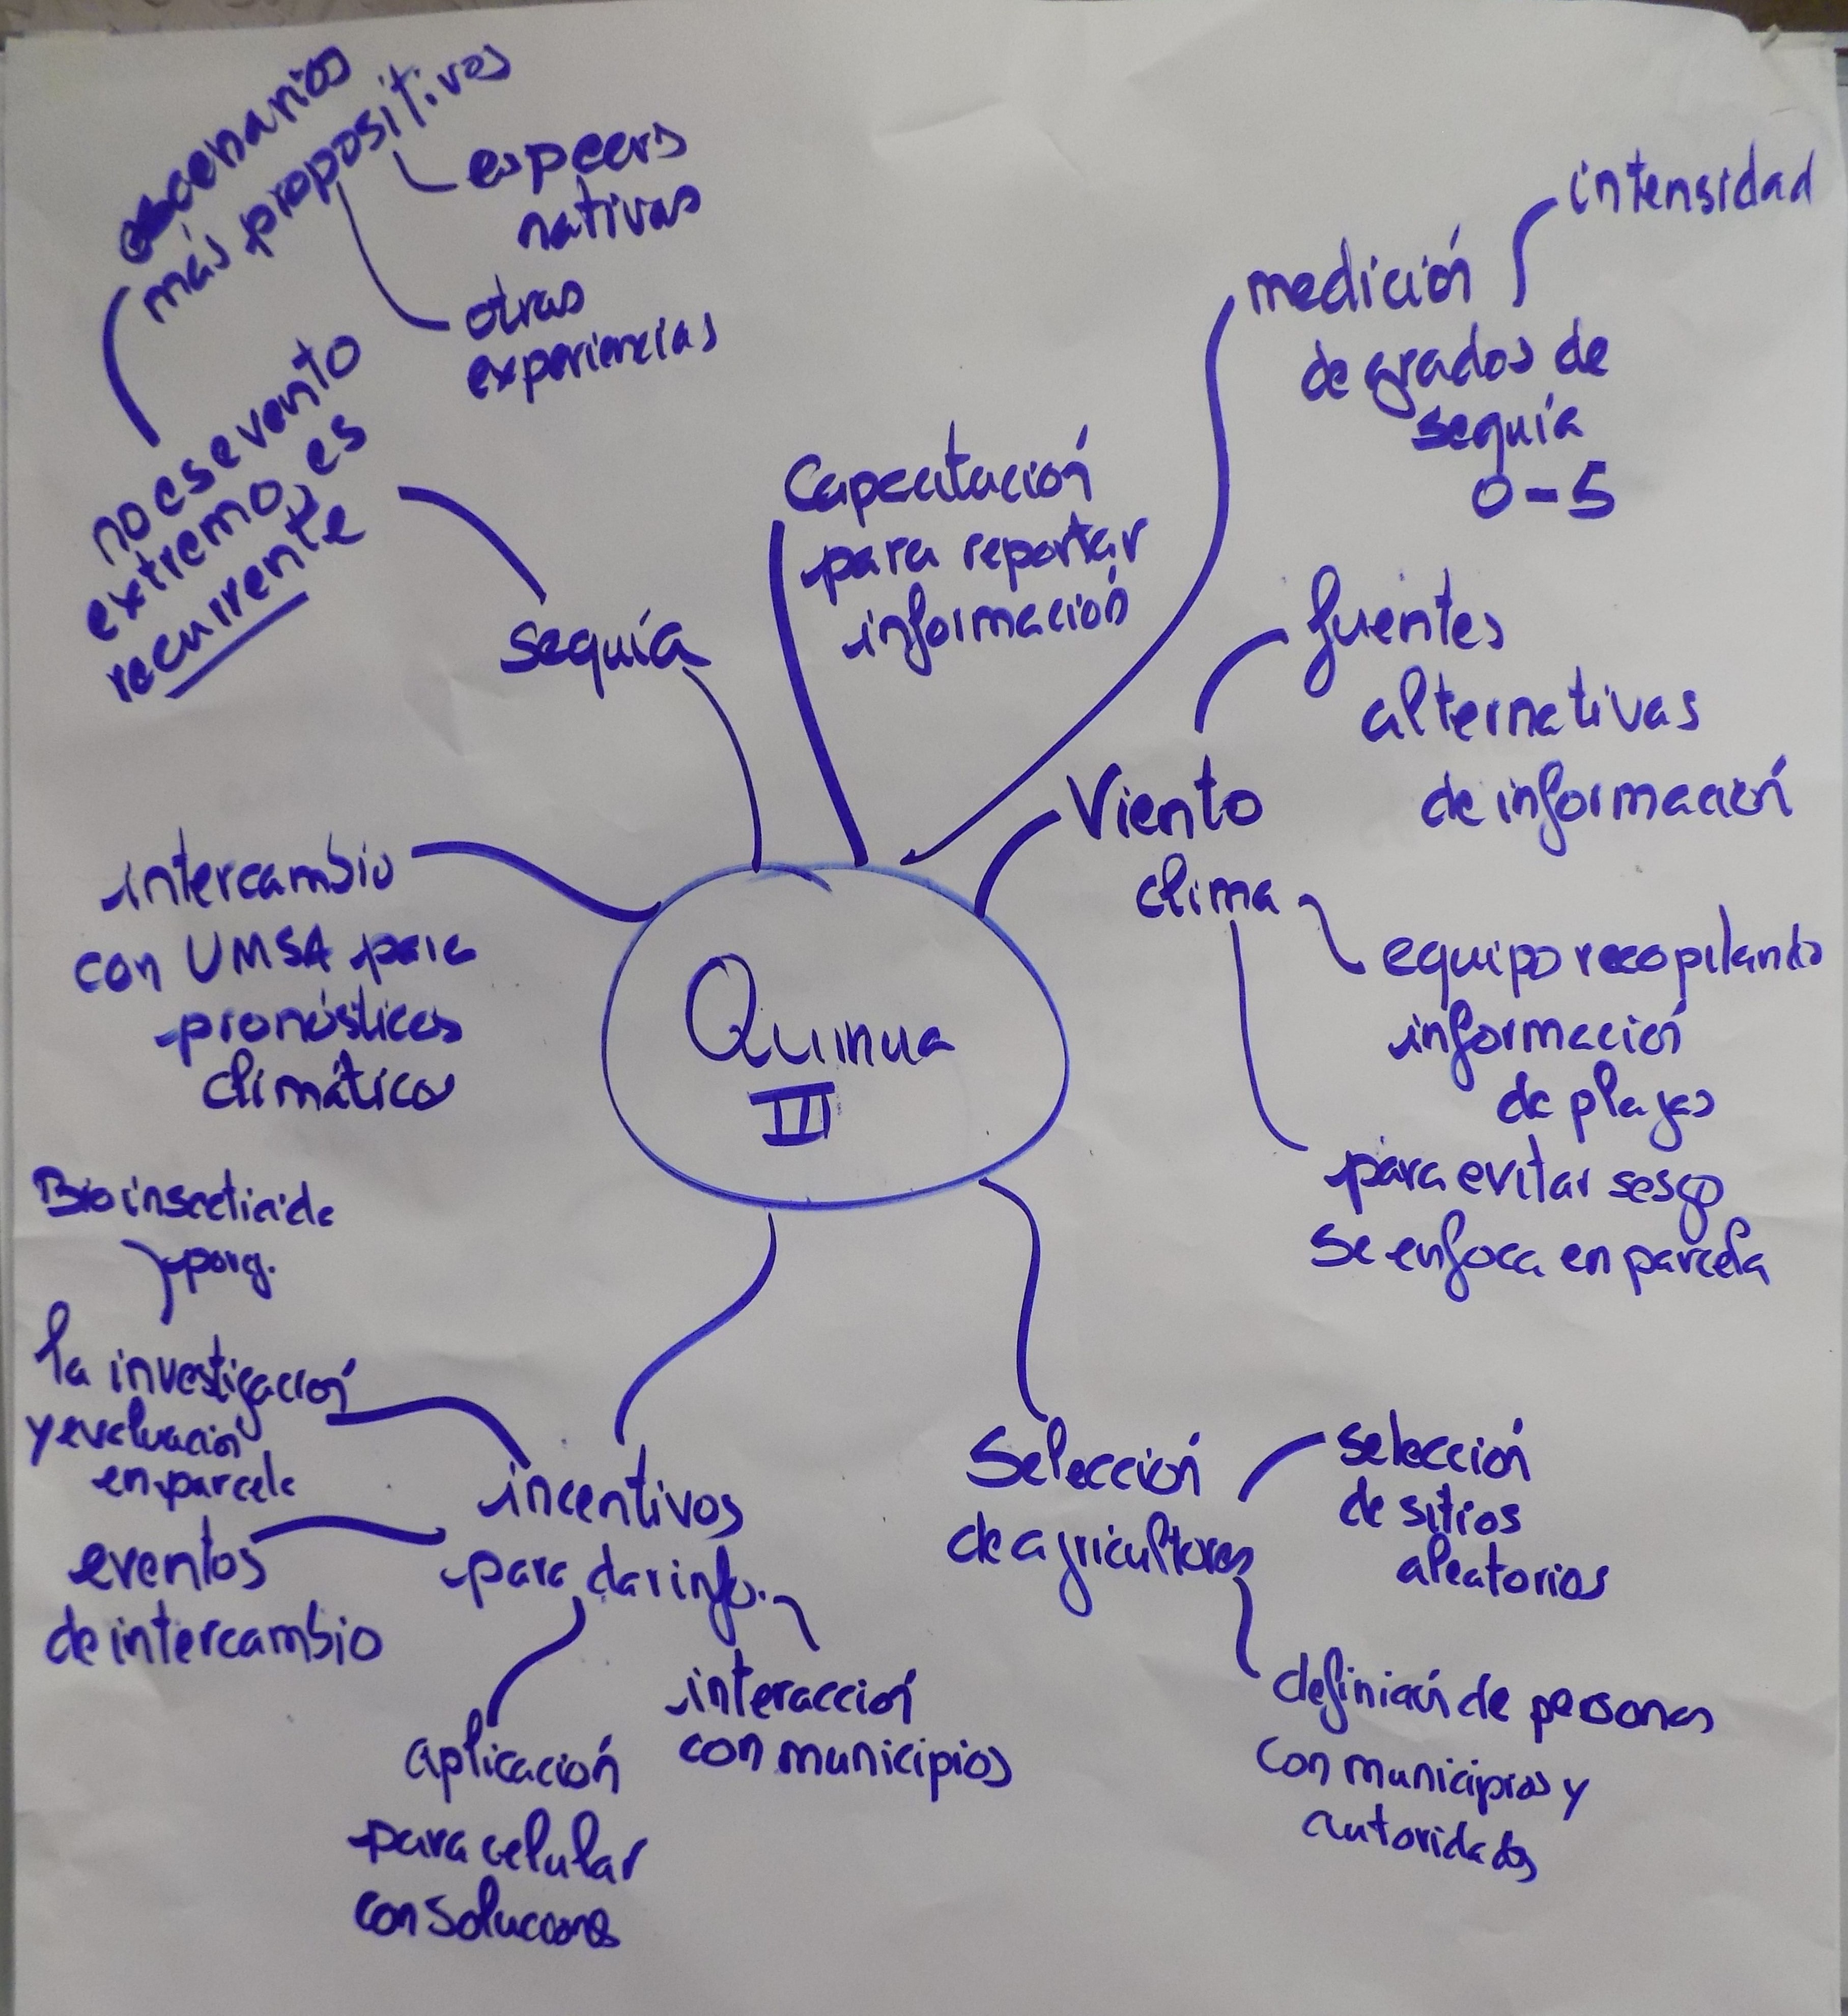 escenarios
más propositivos
especies
nativas
otras
experiencias
no es evento
extremo, es
recurrente
sequía
Capacitación
para reportar
información
medición
de grados de
sequía
0-5
intensidad
Viento
clima
fuentes
alternativas
de información
equipo recopilando
información
de plagas
para evitar sesgo
se enfoca en parcela
intercambio
con UMSA para
pronósticos
climáticos
Quinua
III
Bioinsecticida
porg.
la investigación
y evaluación
en parcela
eventos
de intercambio
incentivos
para dar info.
aplicación
para celular
con soluciones
interacción
con municipios
Selección
de agricultores
selección
de sitios
aleatorios
definición de personas
con municipios y
autoridades